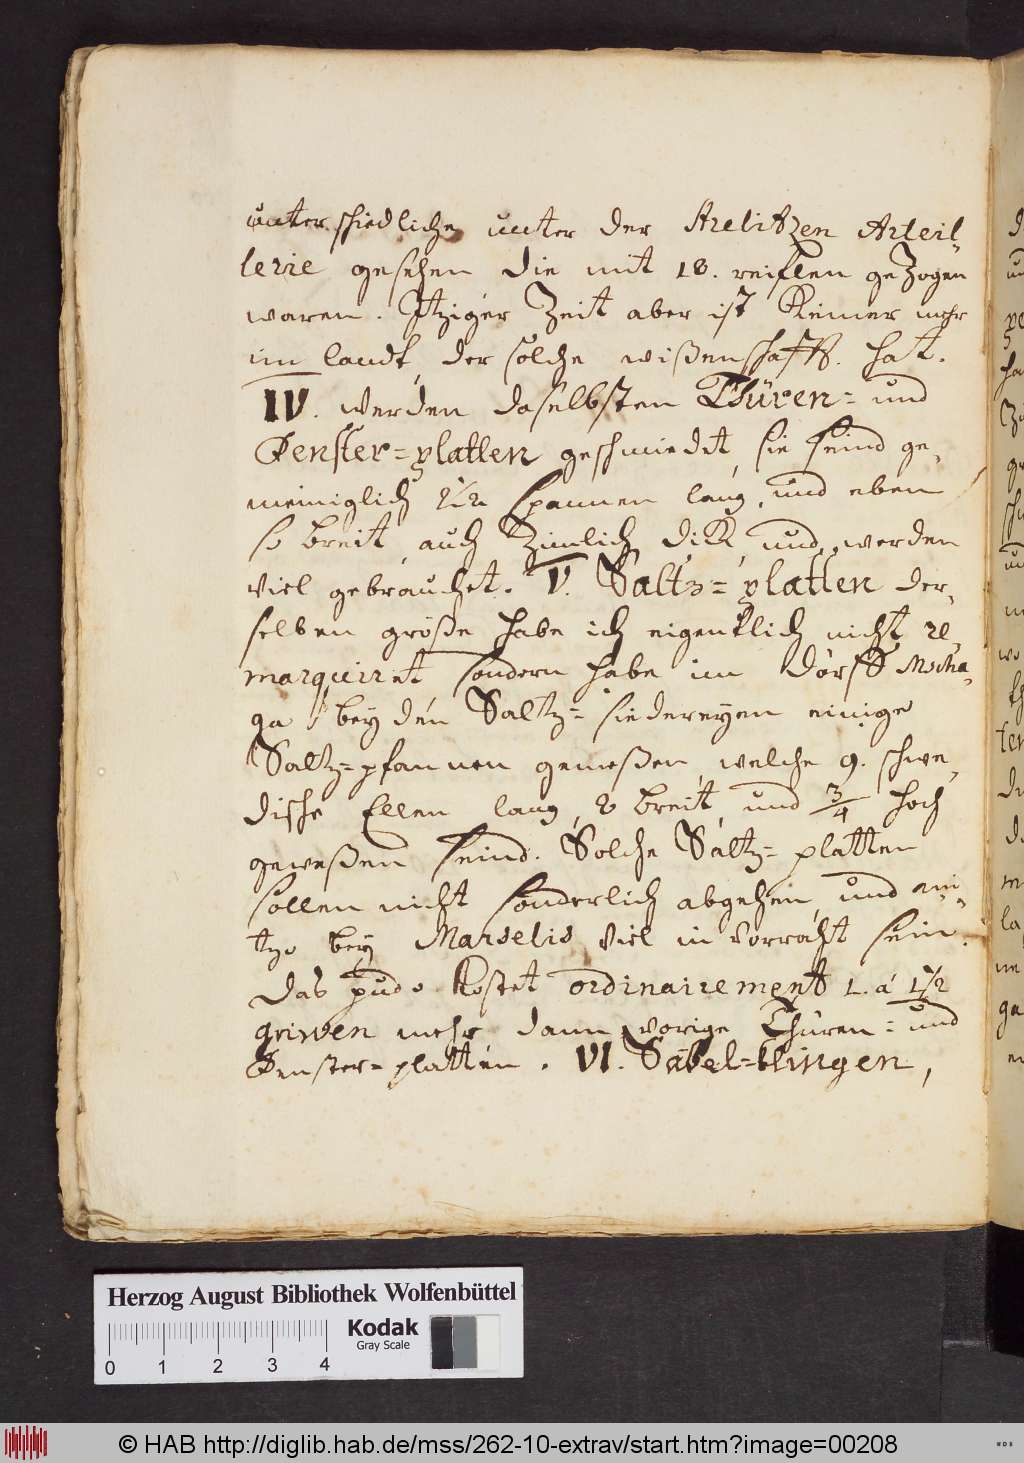 unterschiedliche unter der Strelitzen Arteil-
lerie gesehen die mit 18. reiflen gezogen
waren. Itziger Zeit aber ist Keiner mehr
im landt, der solche wißenschafft hat.
IV. werden daselbsten Thüren= und
Fenster=platten geschmiedet, sie seind ge-
meiniglich 2½ spannen lang, und eben
so breit, auch Zimlich dick, und werden
viel gebrauchet. V. Saltz=platten der-
selben größe habe ich eigentlich nicht re-
marquiret sondern habe im dorff Molha-
ga bey den Saltz=siedereyen einige
Saltz=pfannen gemeßen, welche 9. schwe-
dische Ellen lang, 8 breit, und 3/4 hoch
geweßen seind. Solche Saltz=platten
sollen nicht sonderlich abgehen, und an-
itzo bey Marselis viel in vorraht sein.
Das pudo kostet ordinairement 1. á 1½
griwen mehr dann vorige Thüren= und
Fenster=platten. VI. Säbel=klingen,
Herzog August Bibliothek Wolfenbüttel
Kodak
Gray Scale
0 1 2 3 4
© HAB http://diglib.hab.de/mss/262-10-extrav/start.htm?image=00208